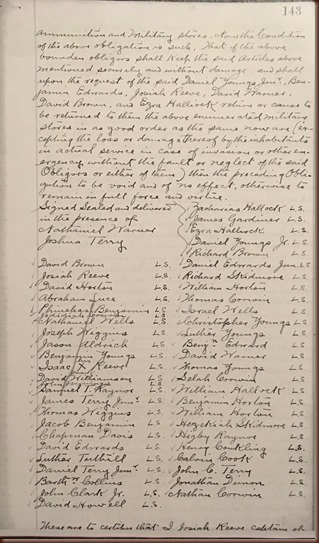 143
ammunition and Military stores. Now the Condition
of the above obligation is such, That if the above
bounden obligors shall Keep the said Articles above
mentioned securely and without damage and shall
upon the request of the said Daniel Youngs Junr, Ben-
jamin Edwards, Josiah Reeve, David Warner,
David Brown, and Ezra Hallock return or cause to
be returned to them the above enumerated military
stores in as good order as the same now are (ex-
cepting the loss or damage thereof by the inhabitants
in actual service in Case of invasion or other em-
ergency without the fault or neglect of the said
Obligors or either of them) then the preceding Obli-
gation to be void and of no effect, otherwise to
remain in full force and virtue.
Signed Sealed and delivered
in the presence of
Nathaniel Warner
Joshua Terry
Zacharias Hallock L.S.
James Gardiner L.S.
Ezra Hallock L.S.
Daniel Youngs Jr. L.S.
Richard Brown L.S.
David Brown L.S. Daniel Edwards Jun. L.S.
Josiah Reeve L.S. Richard Skidmore L.S.
David Horton L.S. William Horton L.S.
Abraham Luce L.S. Thomas Corwin L.S.
Phinehas Benjamin L.S. Israel Wells L.S.
Nathaniel Wells L.S. Christopher Youngs L.S.
Joseph Wiggins L.S. Luther Youngs L.S.
Jason Aldrich L.S. Benjn Edward L.S.
Benjamin Youngs L.S. David Warner L.S.
Isaac X Reeve L.S. Thomas Youngs L.S.
David Williamson L.S. Selah Corwin L.S.
Samuel T. Raynor L.S. William Hallock L.S.
James Terry Junr L.S. Benjamin Horton L.S.
Thomas Wiggins L.S. William Horton L.S.
Jacob Benjamin L.S. Hezekiah Skidmore L.S.
Chapman Davis L.S. Higby Raynor L.S.
David Edwards L.S. Henry Conkling L.S.
Luther Tuthill L.S. Calvin Cook L.S.
Daniel Terry Junr L.S. John C. Terry L.S.
Barthw Collins L.S. Jonathan Dimon L.S.
John Clark Jr. L.S. Nathan Corwin L.S.
David Howell L.S.
These are to certifie that I Josiah Reeve captain of